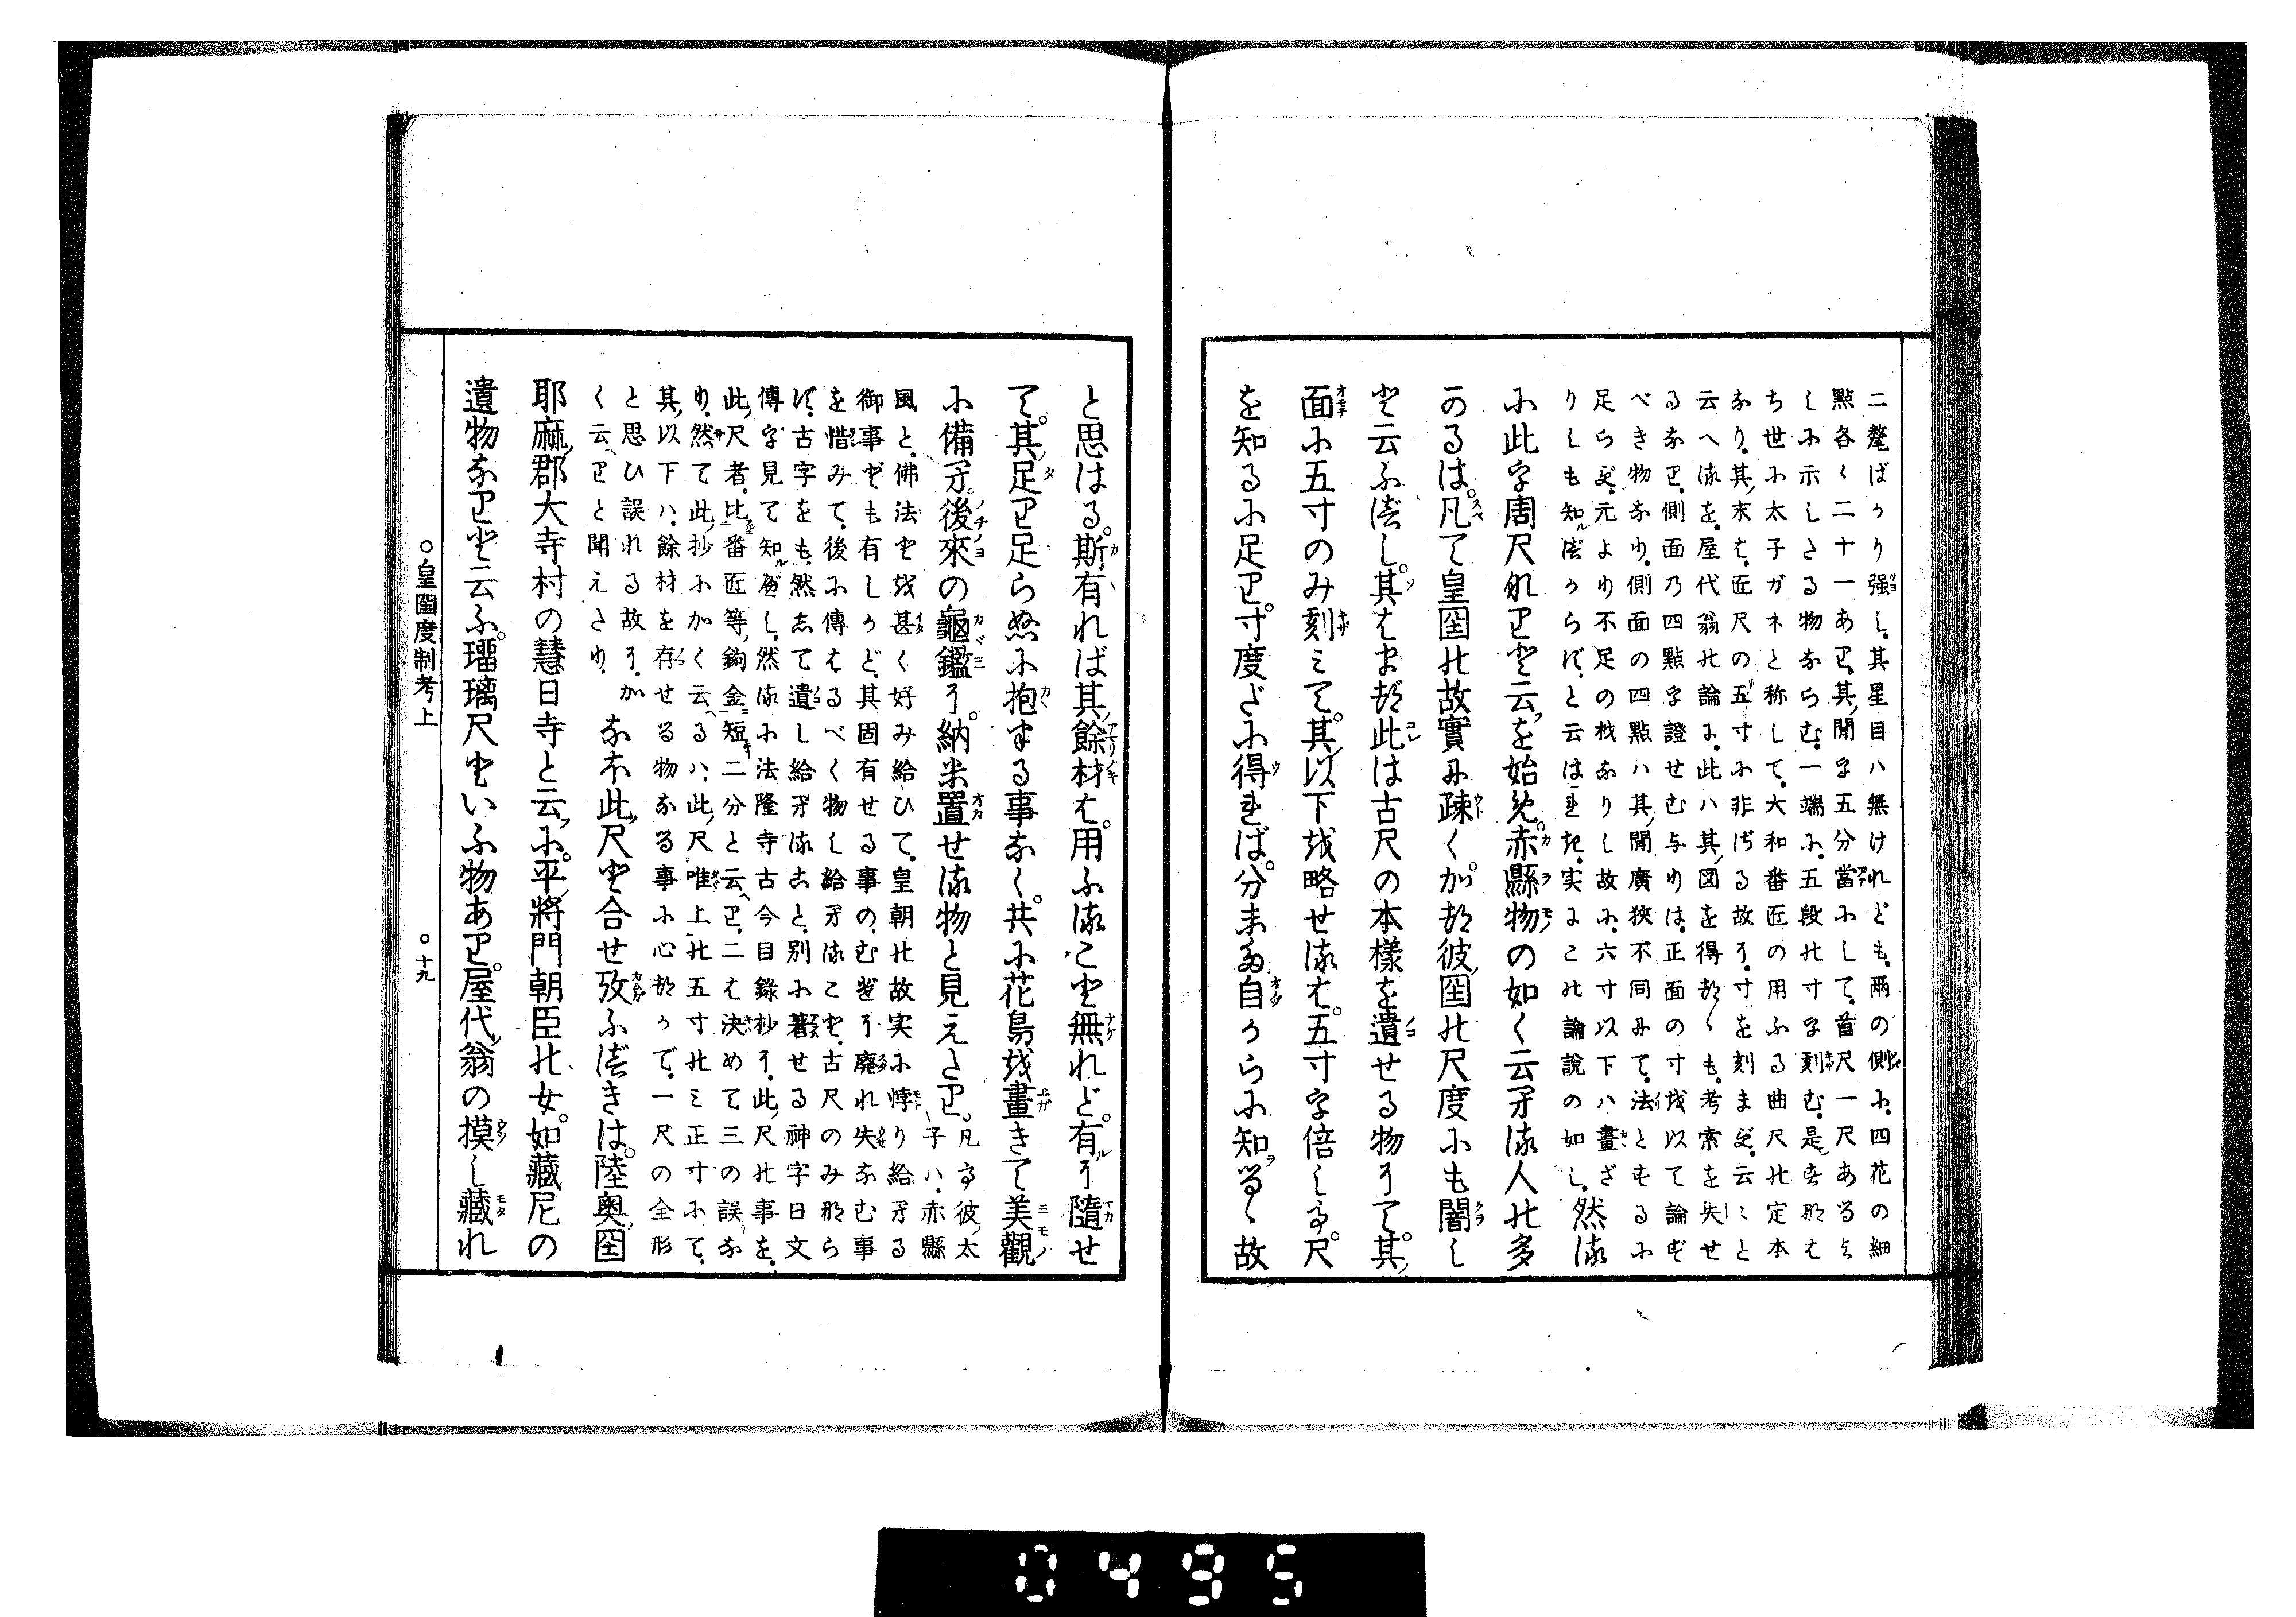 二釐ばかり强し其星目ハ無けれども兩の側に四花の細
點各〻二十一あり其間字五分當にして首尺一尺あるよ
しに示しさる物ならむ一端に五段の寸字刻む是もすなは
ち世に太子ガネと称して大和畨匠の用ふる曲尺の定本
なり其末は匠尺の五寸に非ざる故に寸を刻まず云〻と
云へるを屋代翁の論に此ハ其図を得つゝも考索を失せ
るなり側面乃四點字證せむよりは正面の寸を以て論ず
べき物なり側面の四點ハ其間廣狹不同にて法とするに
足らず元より不足の材なりし故に六寸以下ハ畫ざ
りしも知べからずと云はれき実にこの論說の如し然る
に此字周尺なりと云を始め赤縣物の如く云する人の多
のるは凡て皇国の故實に疎くかつ彼国の尺度にも闇し
と云ふべし其はまづ此は古尺の本樣を遺せる物にて其
面に五寸のみ刻みて其以下を略せるは五寸字倍して尺
を知るに足り寸度だに得れば分まで自からに知るゝ故
と思はる斯有れば其餘材は用ふること無れど有に隨せ
て其足り足らぬに抱はる事なく共に花鳥を畫きて美觀
に備へ後來の龜鑑に納め置せる物と見えたり凡て彼太
子ハ赤縣
風と佛法とを甚く好み給ひて皇朝の故実に悖り給へる
御事ども有しかど其固有せる事のむげに廢れ失なむ事
を惜みて後に傳はるべく物し給へること古尺のみならず
古字をも然して遺し給へること別に著せる神字日文
傳字見て知べし然るに法隆寺古今目錄抄に此尺の事を
此尺者比畨匠等鉤金短二分と云へり二は決めて三の誤な
り然て此抄にかく云るハ此尺唯上の五寸のミ正寸にて
其以下ハ餘材を存せる物なる事に心づかで一尺の全形
と思ひ誤れる故にか
く云りと聞えたり
なほ此尺と合せ攷ふべきは陸奥国
耶麻郡大寺村の慧日寺と云に平將門朝臣の女如藏尼の
遺物なりと云ふ瑠璃尺といふ物あり屋代翁の摸し藏れ
○皇国度制考上
○十九
0495